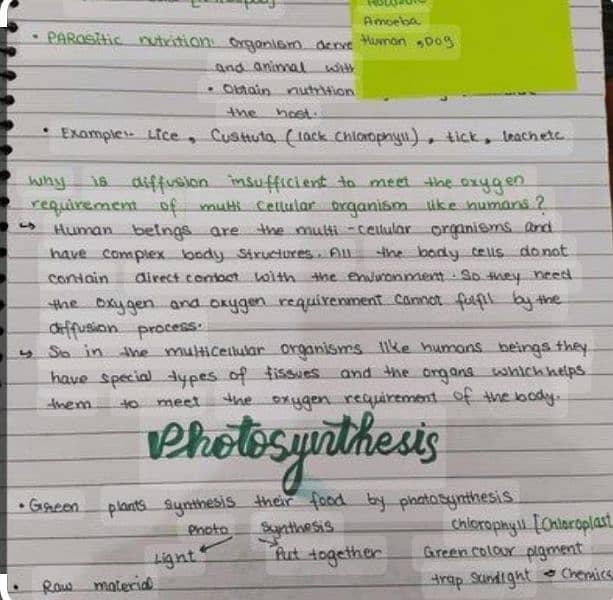 Amoeba
• Parasitic nutrition: organism derive Human, Dog
and animal with
• Obtain nutrition
the host.
• Example:- Lice, Custtuta (lack chlorophyll), tick, leach etc
why is diffusion insufficient to meet the oxygen
requirement of multi cellular organism like humans?
↳ Human beings are the multi-cellular organisms and
have complex body structures. All the body cells do not
contain direct contact with the environment. So they need
the oxygen and oxygen requirenment cannot fulfil by the
diffusion process.
↳ So in the multicellular organisms like humans beings they
have special types of tissues and the organs which helps
them to meet the oxygen requirement of the body.
Photosynthesis
• Green plants synthesis their food by photosynthesis
Photo Synthesis Chlorophyll [Chloroplast
Light Put together Green colour pigment
• Raw material trap sunlight → Chemica